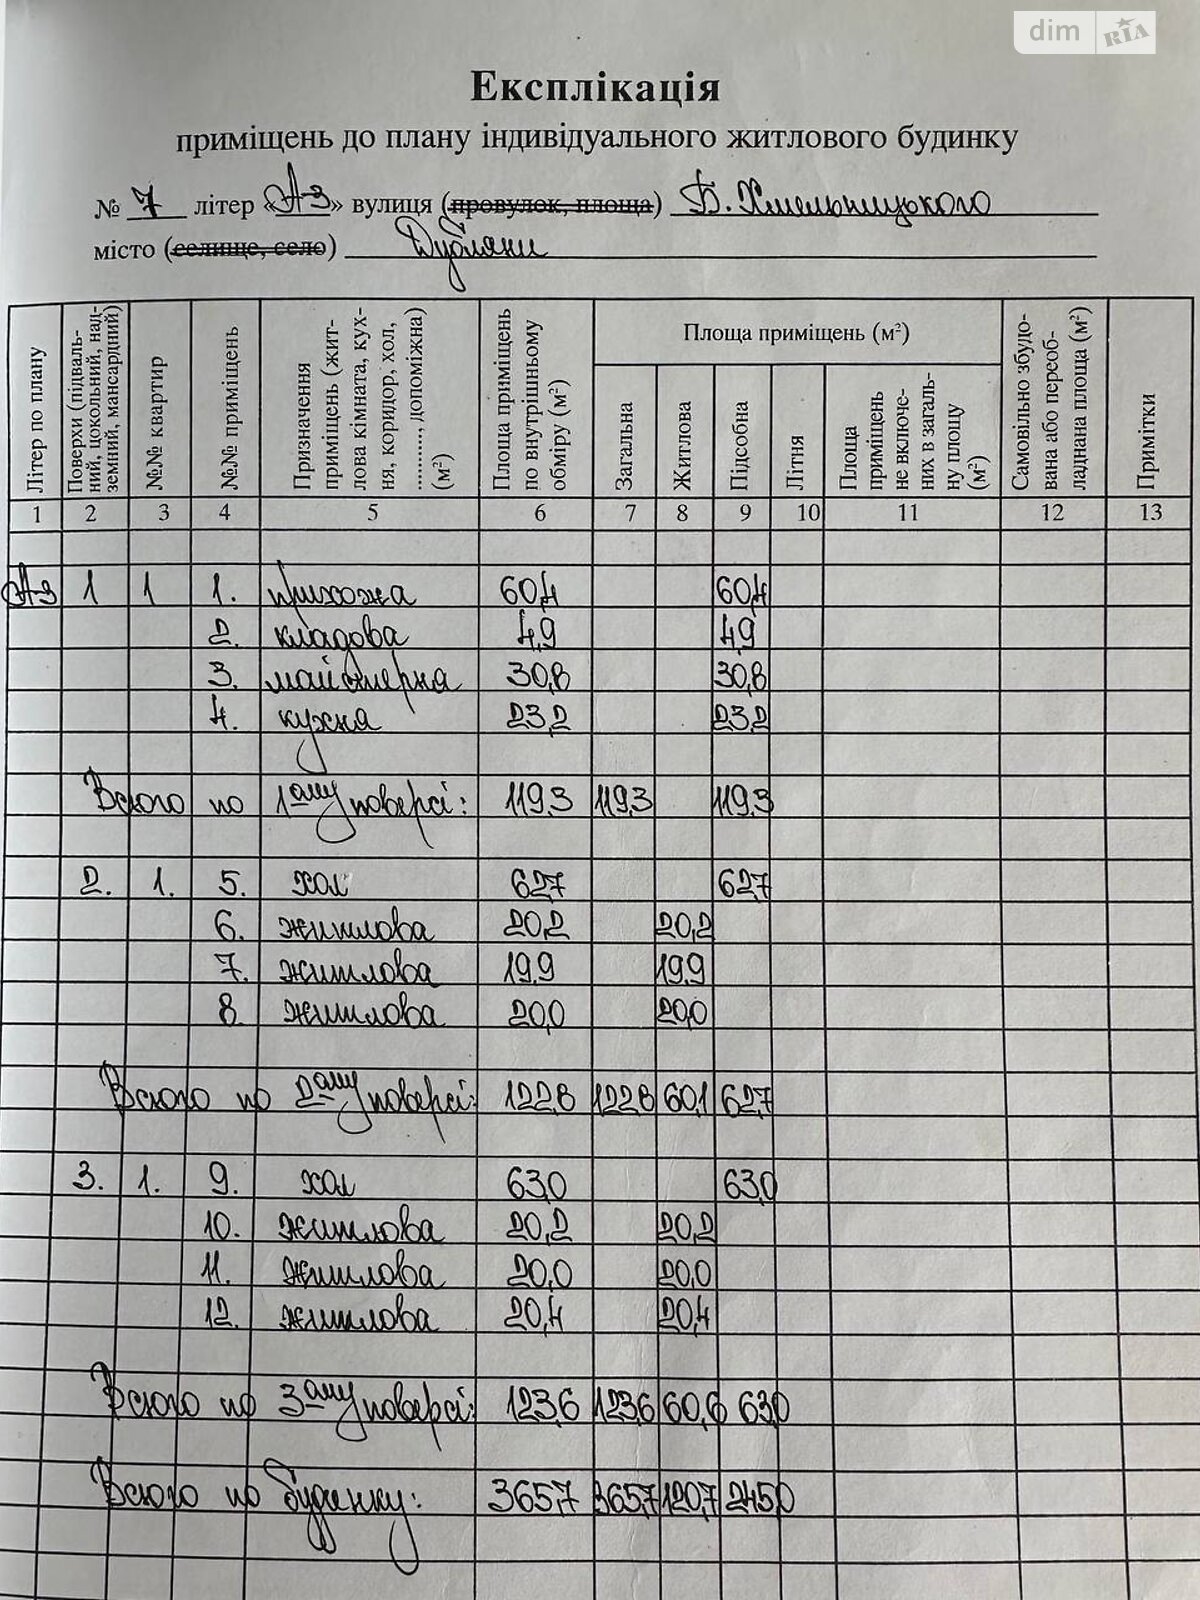 dim RIA
Експлікація
приміщень до плану індивідуального житлового будинку
№ 7 літер «А-3» вулиця (провулок, площа) Б. Хмельницького
місто (селище, село) Дубляни
Літер по плану
Поверхи (підвальний, цокольний, надземний, мансардний)
№№ квартир
№№ приміщень
Призначення приміщень (житлова кімната, кухня, коридор, хол, .........., допоміжна) (м²)
Площа приміщень по внутрішньому обміру (м²)
Площа приміщень (м²)
Загальна
Житлова
Підсобна
Літня
Площа приміщень не включених в загальну площу (м²)
Самовільно збудована або переобладнана площа (м²)
Примітки
1 2 3 4 5 6 7 8 9 10 11 12 13
А-3 1 1 1. прихожа 60,4 60,4
2. кладова 4,9 4,9
3. майстерня 30,8 30,8
4. кухня 23,2 23,2
Всього по 1ому поверсі: 119,3 119,3 119,3
2. 1. 5. хол 62,7 62,7
6. житлова 20,2 20,2
7. житлова 19,9 19,9
8. житлова 20,0 20,0
Всього по 2ому поверсі: 122,8 122,8 60,1 62,7
3. 1. 9. хол 63,0 63,0
10. житлова 20,2 20,2
11. житлова 20,0 20,0
12. житлова 20,4 20,4
Всього по 3ому поверсі: 123,6 123,6 60,6 63,0
Всього по будинку: 365,7 365,7 120,7 245,0